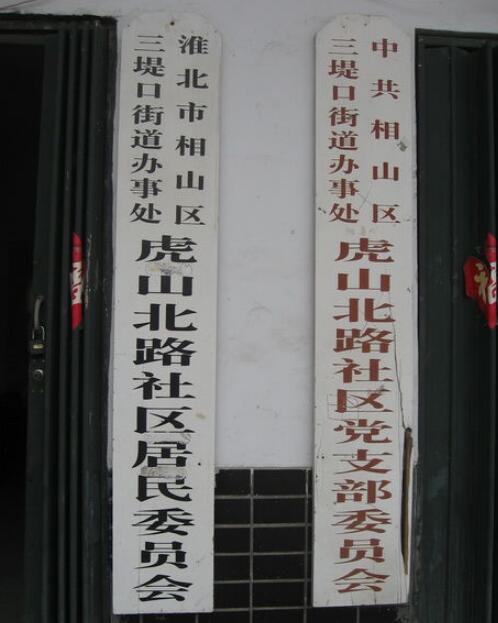 中共相山区
三堤口街道办事处
虎山北路社区党支部委员会
淮北市相山区
三堤口街道办事处
虎山北路社区居民委员会
福